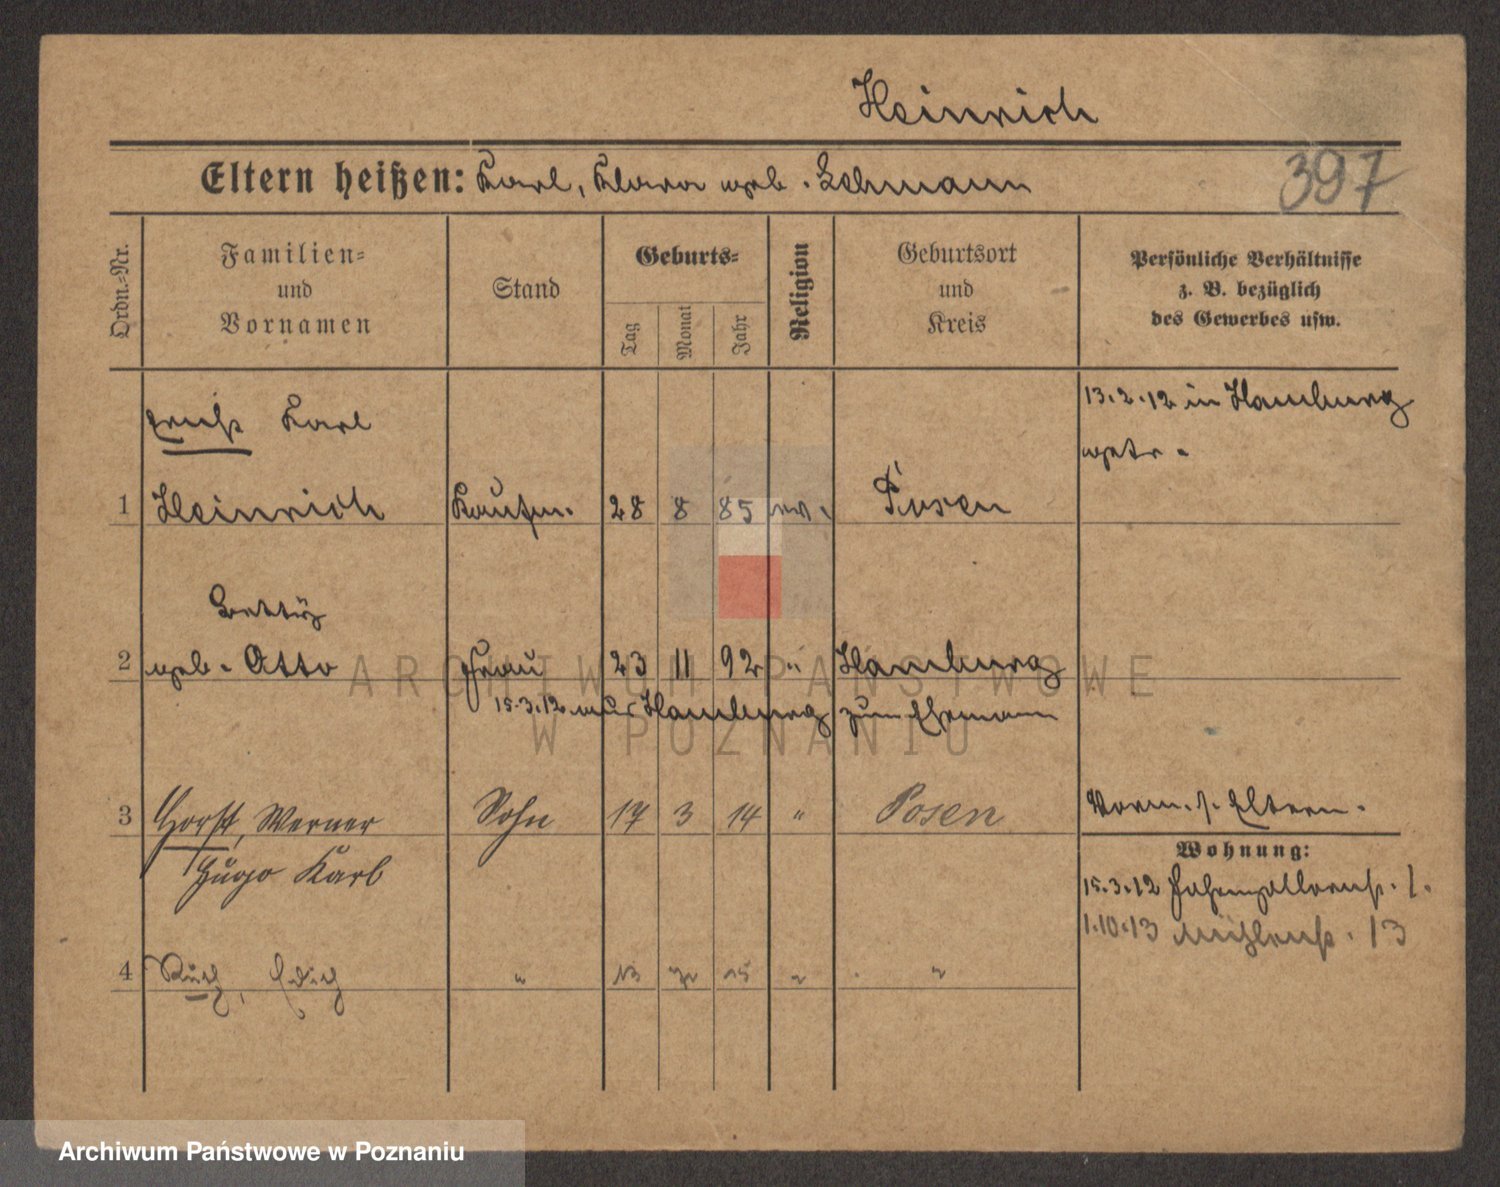 Heinrich
Eltern heißen: Karl, Klara geb. Lehmann
397
Ordn.-Nr.
Familien-
und
Vornamen
Stand
Geburts-
Tag
Monat
Jahr
Religion
Geburtsort
und
Kreis
Persönliche Verhältnisse
z. B. bezüglich
des Gewerbes usw.
Karl
13.2.12 in Hamburg
getr.
1 Heinrich Kaufm. 28 8 85 ev. Posen
2 geb. Otto Frau 23 11 92 " Hamburg
15.3.12 aus Hamburg zum Ehemann
3 Horst, Werner Sohn 17 3 14 " Posen
Hugo Karl
Vorm. s. Eltern.
Wohnung:
15.3.12
1.10.13 Mühlenstr. 13
4 " 15 " "
ARCHIWUM PAŃSTWOWE
W POZNANIU
Archiwum Państwowe w Poznaniu